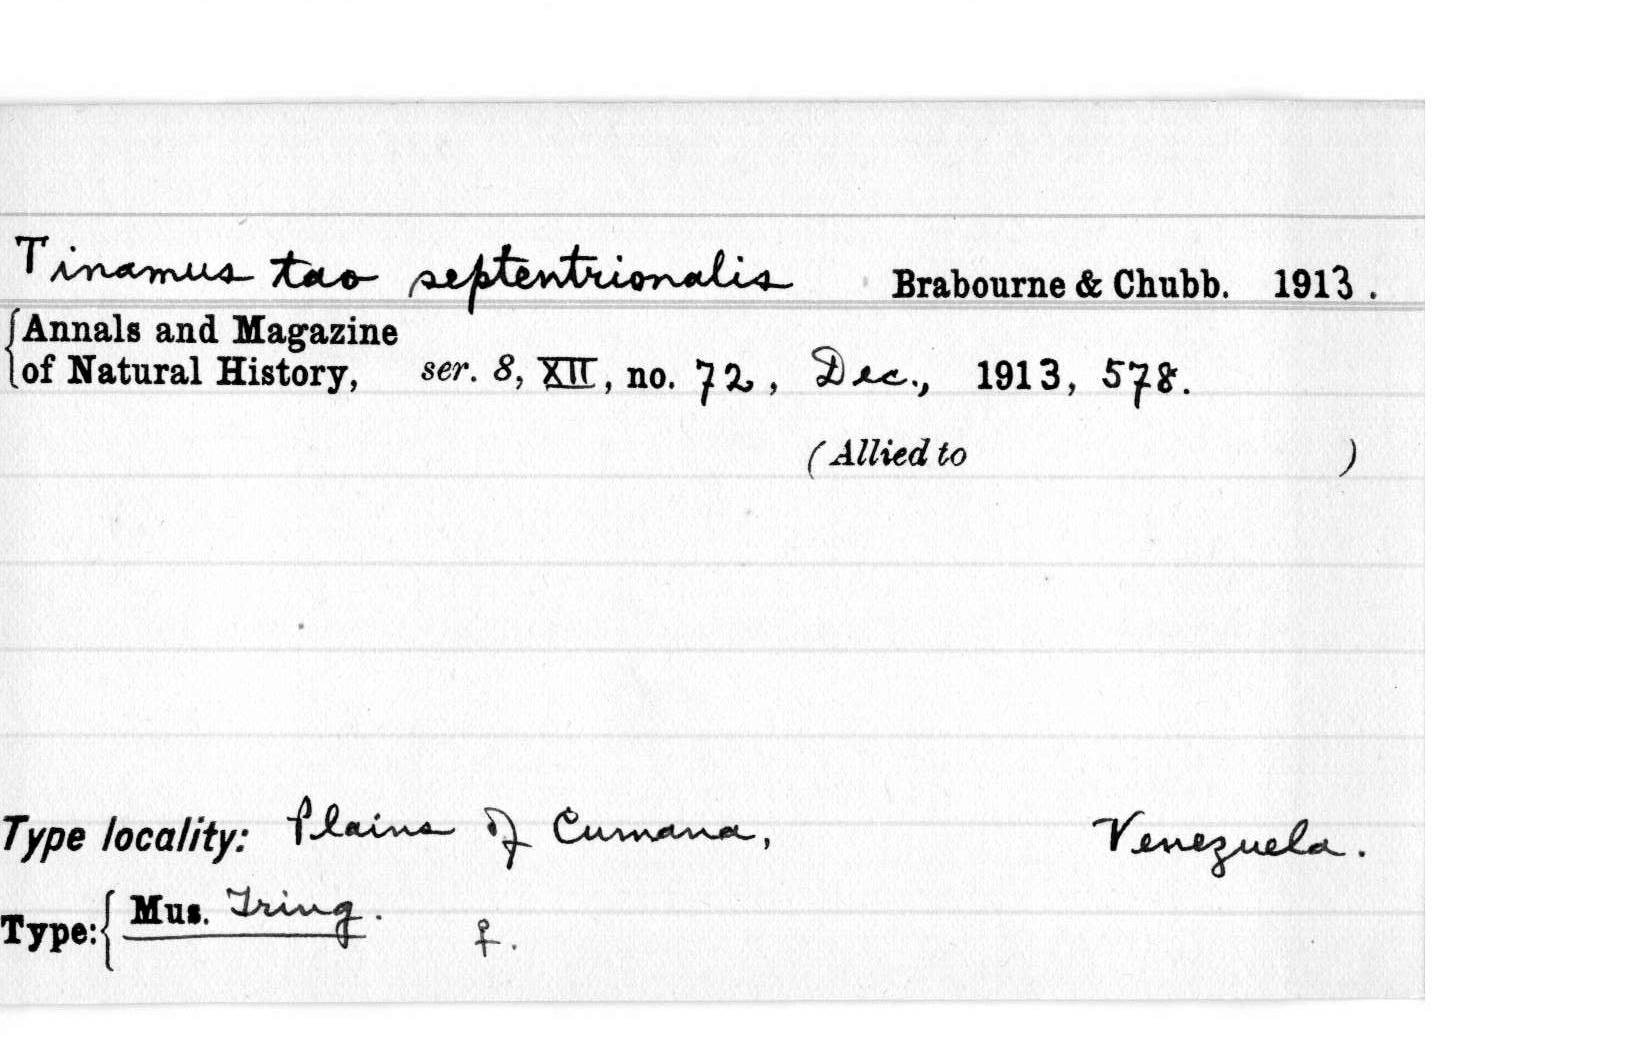 Tinamus tao septentrionalis Brabourne & Chubb. 1913.
Annals and Magazine
of Natural History, ser. 8, XII, no. 72, Dec., 1913, 578.
(Allied to )
Type locality: Plains of Cumana, Venezuela.
Type: Mus. Tring. ♀.